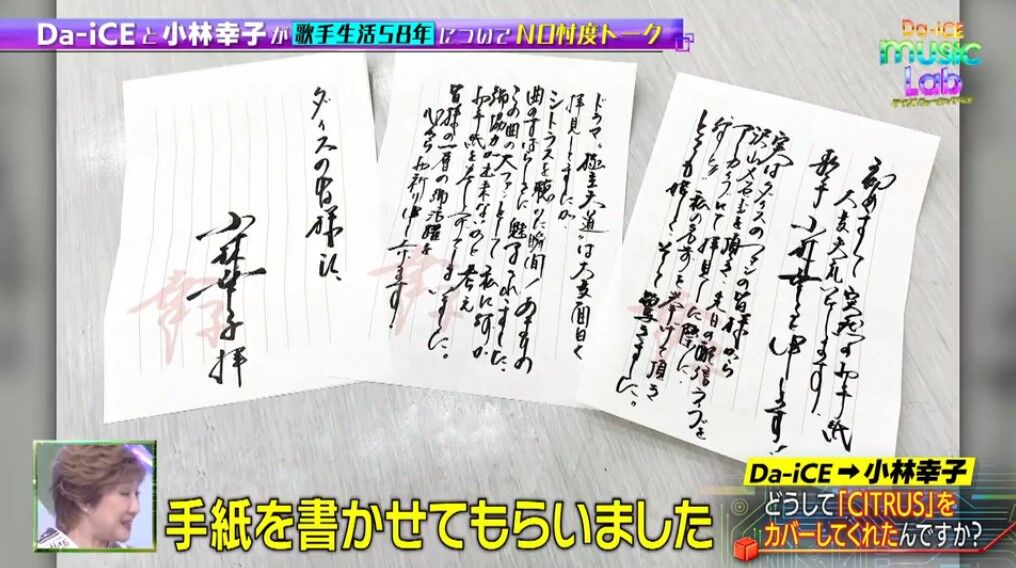 Da-iCEと小林幸子が歌手生活58年についてNO忖度トーク
Da-iCE
music
Lab
初めまして 突然のお手紙
大変失礼いたします。
歌手 小林幸子と申します!
実はダイスのファンの皆様から
沢山メッセージを頂き、先日の配信ライブを
アーカイブにて拝見した際に、
私の名前を挙げて頂き
とても嬉しく、そして驚きました。
ドラマ、極主夫道は大変面白く
拝見してましたが、
シトラスを聴いた瞬間!あまりの
曲のすばらしさに魅了されました。
この曲の大ファンとして 私に何か
御協力が出来ないかと考え
お手紙を書かせてしまいました。
皆様の一層の御活躍を
心からお祈り申し上げます!
ダイスの皆様へ、
小林幸子 拝
幸子
幸子
手紙を書かせてもらいました
Da-iCE➡小林幸子
どうして「CITRUS」を
カバーしてくれたんですか?